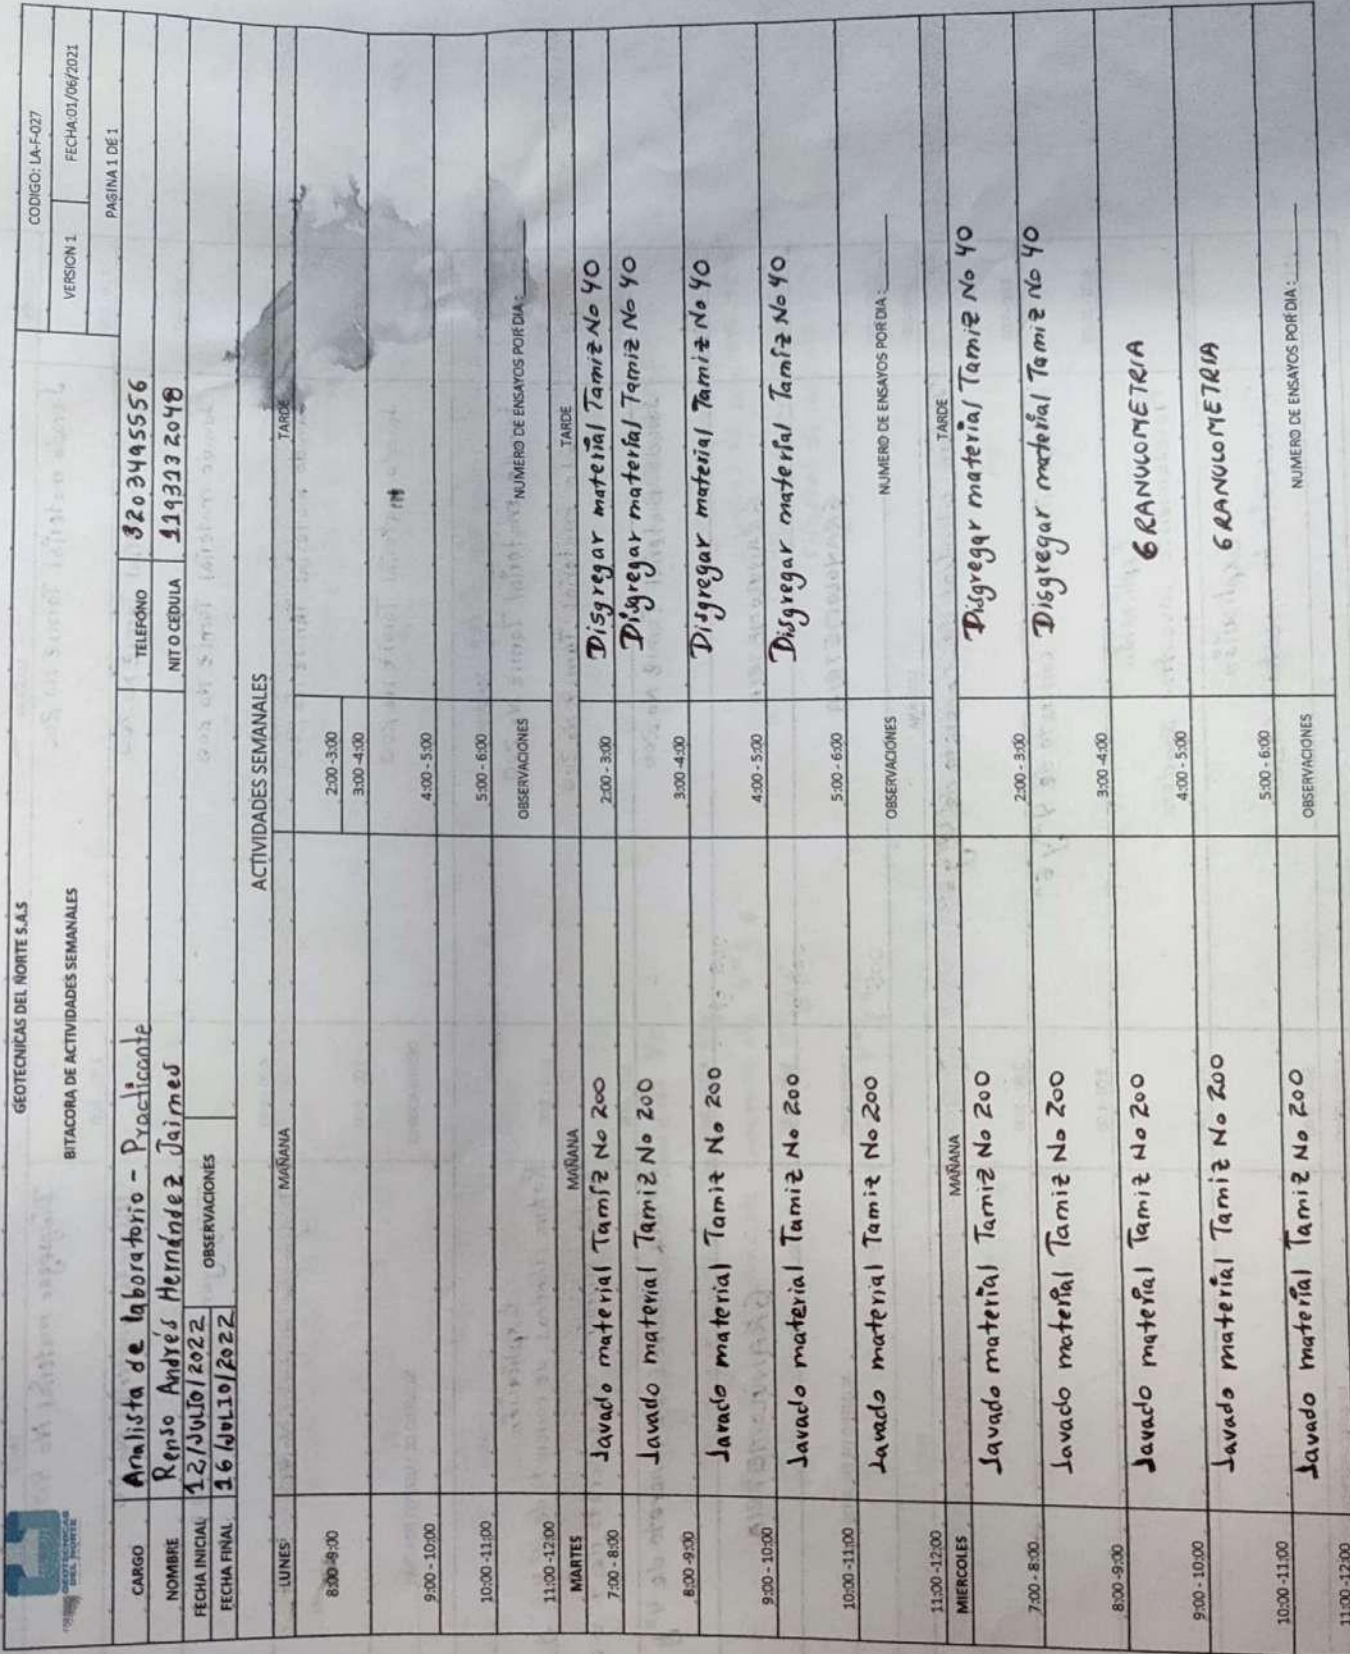 GEOTECNICAS DEL NORTE
GEOTECNICAS DEL NORTE S.A.S
BITACORA DE ACTIVIDADES SEMANALES
CODIGO: LA-F-027
VERSION 1 FECHA:01/06/2021
PAGINA 1 DE 1
CARGO Analista de laboratorio - Practicante TELEFONO 3203495556
NOMBRE Renso Andrés Hernández Jaimes NIT O CEDULA 1193132048
FECHA INICIAL 12/JULIO/2022 OBSERVACIONES
FECHA FINAL 16/JULIO/2022
ACTIVIDADES SEMANALES
LUNES MAÑANA TARDE
8:00-9:00 2:00 -3:00
3:00 -4:00
9:00 - 10:00 4:00 - 5:00
10:00 -11:00 5:00 - 6:00
11:00 -12:00 OBSERVACIONES NUMERO DE ENSAYOS POR DIA:
MARTES MAÑANA TARDE
7:00 - 8:00 Lavado material Tamiz No 200 2:00 - 3:00 Disgregar material Tamiz No 40
8:00 -9:00 Lavado material Tamiz No 200 3:00 -4:00 Disgregar material Tamiz No 40
9:00 - 10:00 Lavado material Tamiz No 200 4:00 - 5:00 Disgregar material Tamiz No 40
10:00 -11:00 Lavado material Tamiz No 200 5:00 - 6:00 Disgregar material Tamiz No 40
11:00 -12:00 Lavado material Tamiz No 200 OBSERVACIONES NUMERO DE ENSAYOS POR DIA:
MIERCOLES MAÑANA TARDE
7:00 - 8:00 Lavado material Tamiz No 200 2:00 - 3:00 Disgregar material Tamiz No 40
8:00 -9:00 Lavado material Tamiz No 200 3:00 -4:00 Disgregar material Tamiz No 40
9:00 - 10:00 Lavado material Tamiz No 200 4:00 - 5:00 GRANULOMETRIA
10:00 -11:00 Lavado material Tamiz No 200 5:00 - 6:00 GRANULOMETRIA
11:00 -12:00 Lavado material Tamiz No 200 OBSERVACIONES NUMERO DE ENSAYOS POR DIA: